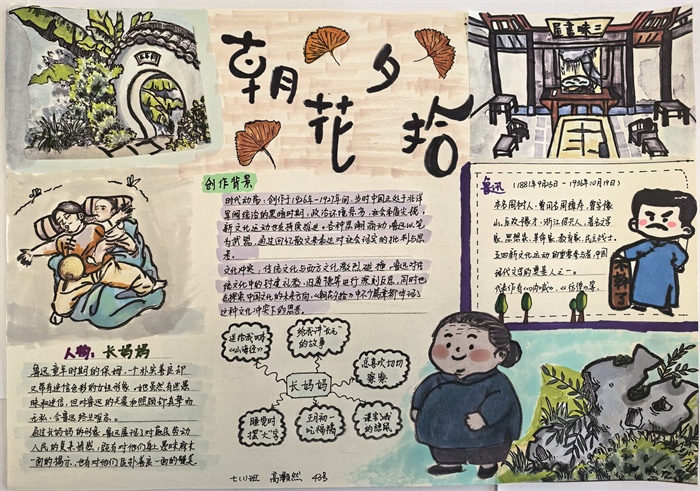 朝花夕拾
三味書屋
创作背景
时代动荡：创作于1926年-1927年间，当时中国正处于北洋
军阀统治的黑暗时期，政治环境
新文化运动
为武器，通过回忆散文来表达对社会现实的批判与思
考。
文化冲突：传统文化与西方文化激烈碰撞，鲁迅对传
统文化中的封建礼教、旧道德等进行深刻反思，同时也
在探索中国文化的未来方向，《朝花夕拾》中不少篇章都体现了
这种文化冲突下的思想。
鲁迅
(1881年9月25日-1936年10月19日)
本名周树人，曾用名周樟寿，曾字豫
山，后改豫才，浙江绍兴人，著名文学
家、思想家、革命家、教育家、民主战士，
五四新文化运动的重要参与者，中国
现代文学的奠基人之一。
代表作有《呐喊》、《彷徨》等。
人物：长妈妈
鲁迅童年时期的保姆，一个朴实善良却
又带有迷信色彩的女性形象，她虽然有些愚
昧和迷信，但对鲁迅的关爱和照顾却真挚而
无私，令鲁迅终生难忘。
通过长妈妈的形象，鲁迅展现了对底层劳动
人民的复杂情感，既有对他们身上愚昧麻木
一面的揭示，也有对他们质朴善良一面的赞美
长妈妈
送给我哥《山海经》
给我讲"长毛"的故事
总喜欢切切察察
睡觉时摆"大"字
正月初一吃福橘
谋害我的隐鼠
七(1)班 高灏然 43号